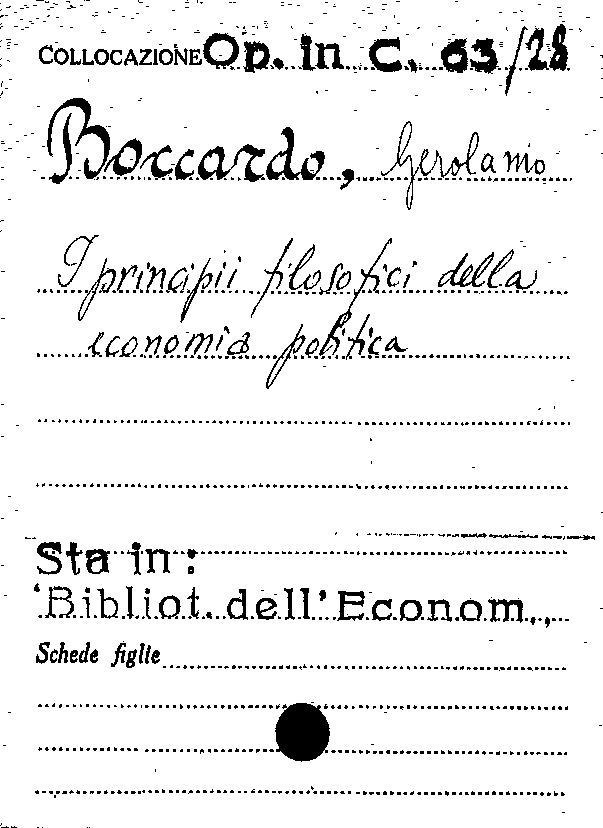 COLLOCAZIONE Op. in C. 63/28
Boccardo, Gerolamo
I principii filosofici della
economia politica
Sta in:
'Bibliot. dell' Econom.,,
Schede figlie